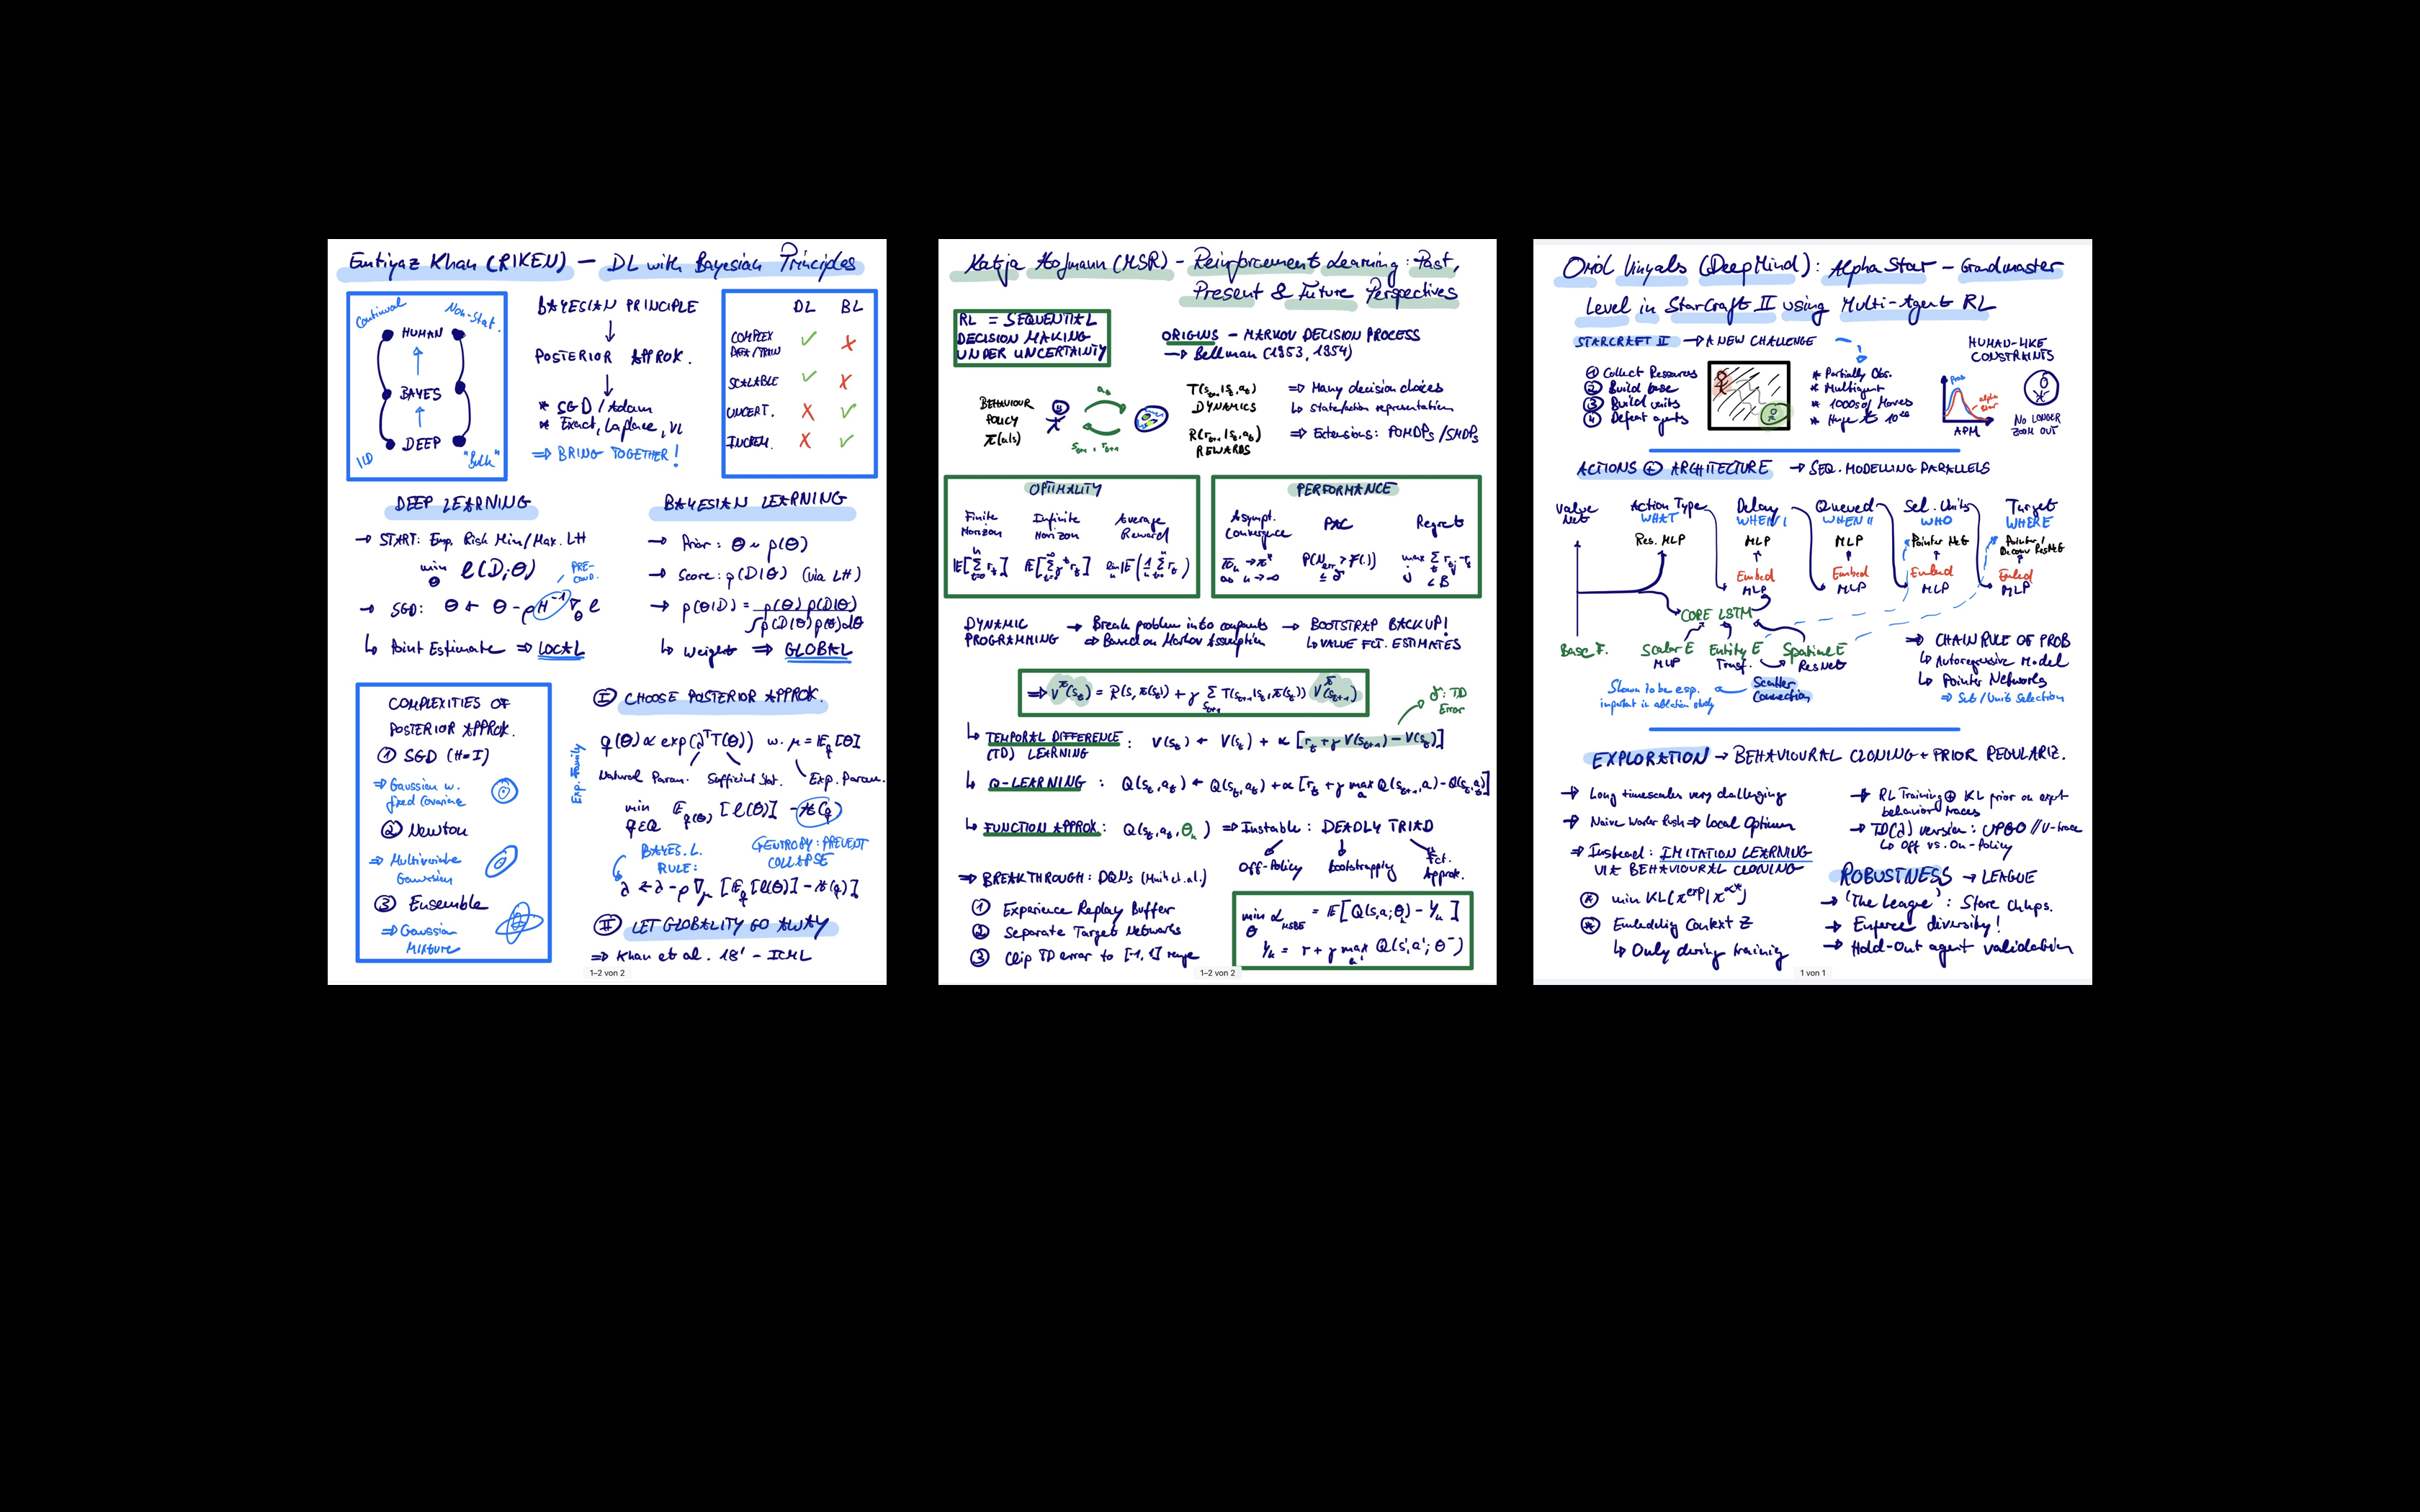 Emtiyaz Khan (RIKEN) — DL with Bayesian Principles
Continual
Non-Stat.
HUMAN
BAYES
DEEP
IID
"Bulk"
BAYESIAN PRINCIPLE
↓
POSTERIOR APPROX.
↓
* SGD / Adam
* Exact, Laplace, VI
⇒ BRING TOGETHER!
DL BL
COMPLEX DATA/TRAIN ✓ ✗
SCALABLE ✓ ✗
UNCERT. ✗ ✓
INCREM. ✗ ✓
DEEP LEARNING
→ START: Emp. Risk Min/Max. LH
min θ ℓ(D;θ)
PRE-COND.
→ SGD: θ ← θ - ρ H⁻¹ ∇θ ℓ
↳ Point Estimate ⇒ LOCAL
BAYESIAN LEARNING
→ Prior: θ ~ p(θ)
→ Score: p(D|θ) (via LH)
→ p(θ|D) = p(θ) p(D|θ) / ∫p(D|θ)p(θ)dθ
↳ Weight ⇒ GLOBAL
COMPLEXITIES OF
POSTERIOR APPROX.
① SGD (H=I)
⇒ Gaussian w.
fixed Covariance
② Newton
⇒ Multivariate
Gaussian
③ Ensemble
⇒ Gaussian
Mixture
Ⓘ CHOOSE POSTERIOR APPROX.
Exp. Family
q(θ) ∝ exp(λᵀT(θ)) w. μ = 𝔼q[θ]
Natural Param. Sufficient Stat. Exp. Param.
min q∈Q 𝔼q(θ)[ℓ(θ)] - ℋ(q)
BAYES. L.
RULE:
ENTROPY: PREVENT
COLLAPSE
λ ← λ - ρ ∇μ [𝔼q[ℓ(θ)] - ℋ(q)]
Ⓘ Ⓘ LET GLOBALITY GO AWAY
⇒ Khan et al. 18' - ICML
1–2 von 2
Katja Hofmann (MSR) - Reinforcement Learning: Past,
Present & Future Perspectives
RL = SEQUENTIAL
DECISION MAKING
UNDER UNCERTAINTY
ORIGINS - MARKOV DECISION PROCESS
→ Bellman (1953, 1954)
BEHAVIOUR
POLICY
π(a|s)
aₜ
sₜ₊₁, rₜ₊₁
T(sₜ₊₁|sₜ,aₜ)
DYNAMICS
R(rₜ₊₁|sₜ,aₜ)
REWARDS
⇒ Many decision choices
↳ State/action representation
⇒ Extensions: POMDPs/SMDPs
OPTIMALITY
Finite Horizon
Infinite Horizon
Average Reward
PERFORMANCE
Asympt. Convergence
PAC
Regret
DYNAMIC
PROGRAMMING
→ Break problem into
⇒ Based on Markov Assumption
→ BOOTSTRAP BACKUP!
↳ VALUE FCT. ESTIMATES
⇒ V^π(sₜ) = R(s,π(sₜ)) + γ Σ T(sₜ₊₁|sₜ,π(sₜ)) V^π(sₜ₊₁)
δ: TD Error
↳ TEMPORAL DIFFERENCE
(TD) LEARNING
: V(sₜ) ← V(sₜ) + α [rₜ + γ V(sₜ₊₁) - V(sₜ)]
↳ Q-LEARNING : Q(sₜ,aₜ) ← Q(sₜ,aₜ) + α [rₜ + γ max Q(sₜ₊₁,a) - Q(sₜ,aₜ)]
↳ FUNCTION APPROX: Q(sₜ,aₜ,θₖ) ⇒ Instable: DEADLY TRIAD
Off-Policy Bootstrapping Fct. Approx.
⇒ BREAKTHROUGH: DQNs (Mnih et.al.)
① Experience Replay Buffer
② Separate Target Networks
③ Clip TD error to [-1,1] range
min θ ℒ MSBE = 𝔼[Q(s,a;θₖ) - Yₖ]
Yₖ = r + γ max a' Q(s',a';θ⁻)
1–2 von 2
Oriol Vinyals (DeepMind): AlphaStar - Grandmaster
Level in StarCraft II using Multi-Agent RL
STARCRAFT II → A NEW CHALLENGE
① Collect Resources
② Build base
③ Build units
④ Defeat agents
* Partially Obs.
* Multiagent
* 1000s of Moves
HUMAN-LIKE
CONSTRAINTS
alpha Star
APM
NO LONGER
ZOOM OUT
ACTIONS ⊕ ARCHITECTURE → SEQ. MODELLING PARALLELS
Value Net
Action Type Delay Queued Sel. Units Target
WHAT WHEN I WHEN II WHO WHERE
Res. MLP MLP MLP Pointer Net Pointer/ Deconv ResNet
Embed Embed Embed Embed
MLP MLP MLP MLP
CORE LSTM
Base F. Scalar E Entity E Spatial E
MLP Transf. ResNet
Shown to be esp.
important in ablation study
Scatter
Connection
⇒ CHAIN RULE OF PROB
↳ Autoregressive Model
↳ Pointer Networks
⇒ Sub/Units Selection
EXPLORATION → BEHAVIOURAL CLONING + PRIOR REGULARIZ.
→ Long timescales very challenging
→ Naive Worker Rush ⇒ Local Optimum
⇒ Instead: IMITATION LEARNING
VIA BEHAVIOURAL CLONING
min KL(π^exp|π^α*)
Embedding Context Z
↳ Only during training
→ RL Training ⊕ KL prior on expert
behavior traces
→ TD(λ) version: UPGO // V-trace
↳ Off vs. On-Policy
ROBUSTNESS → LEAGUE
→ 'The League': Store Chkps.
→ Enforce diversity!
→ Hold-Out agent validation
1 von 1